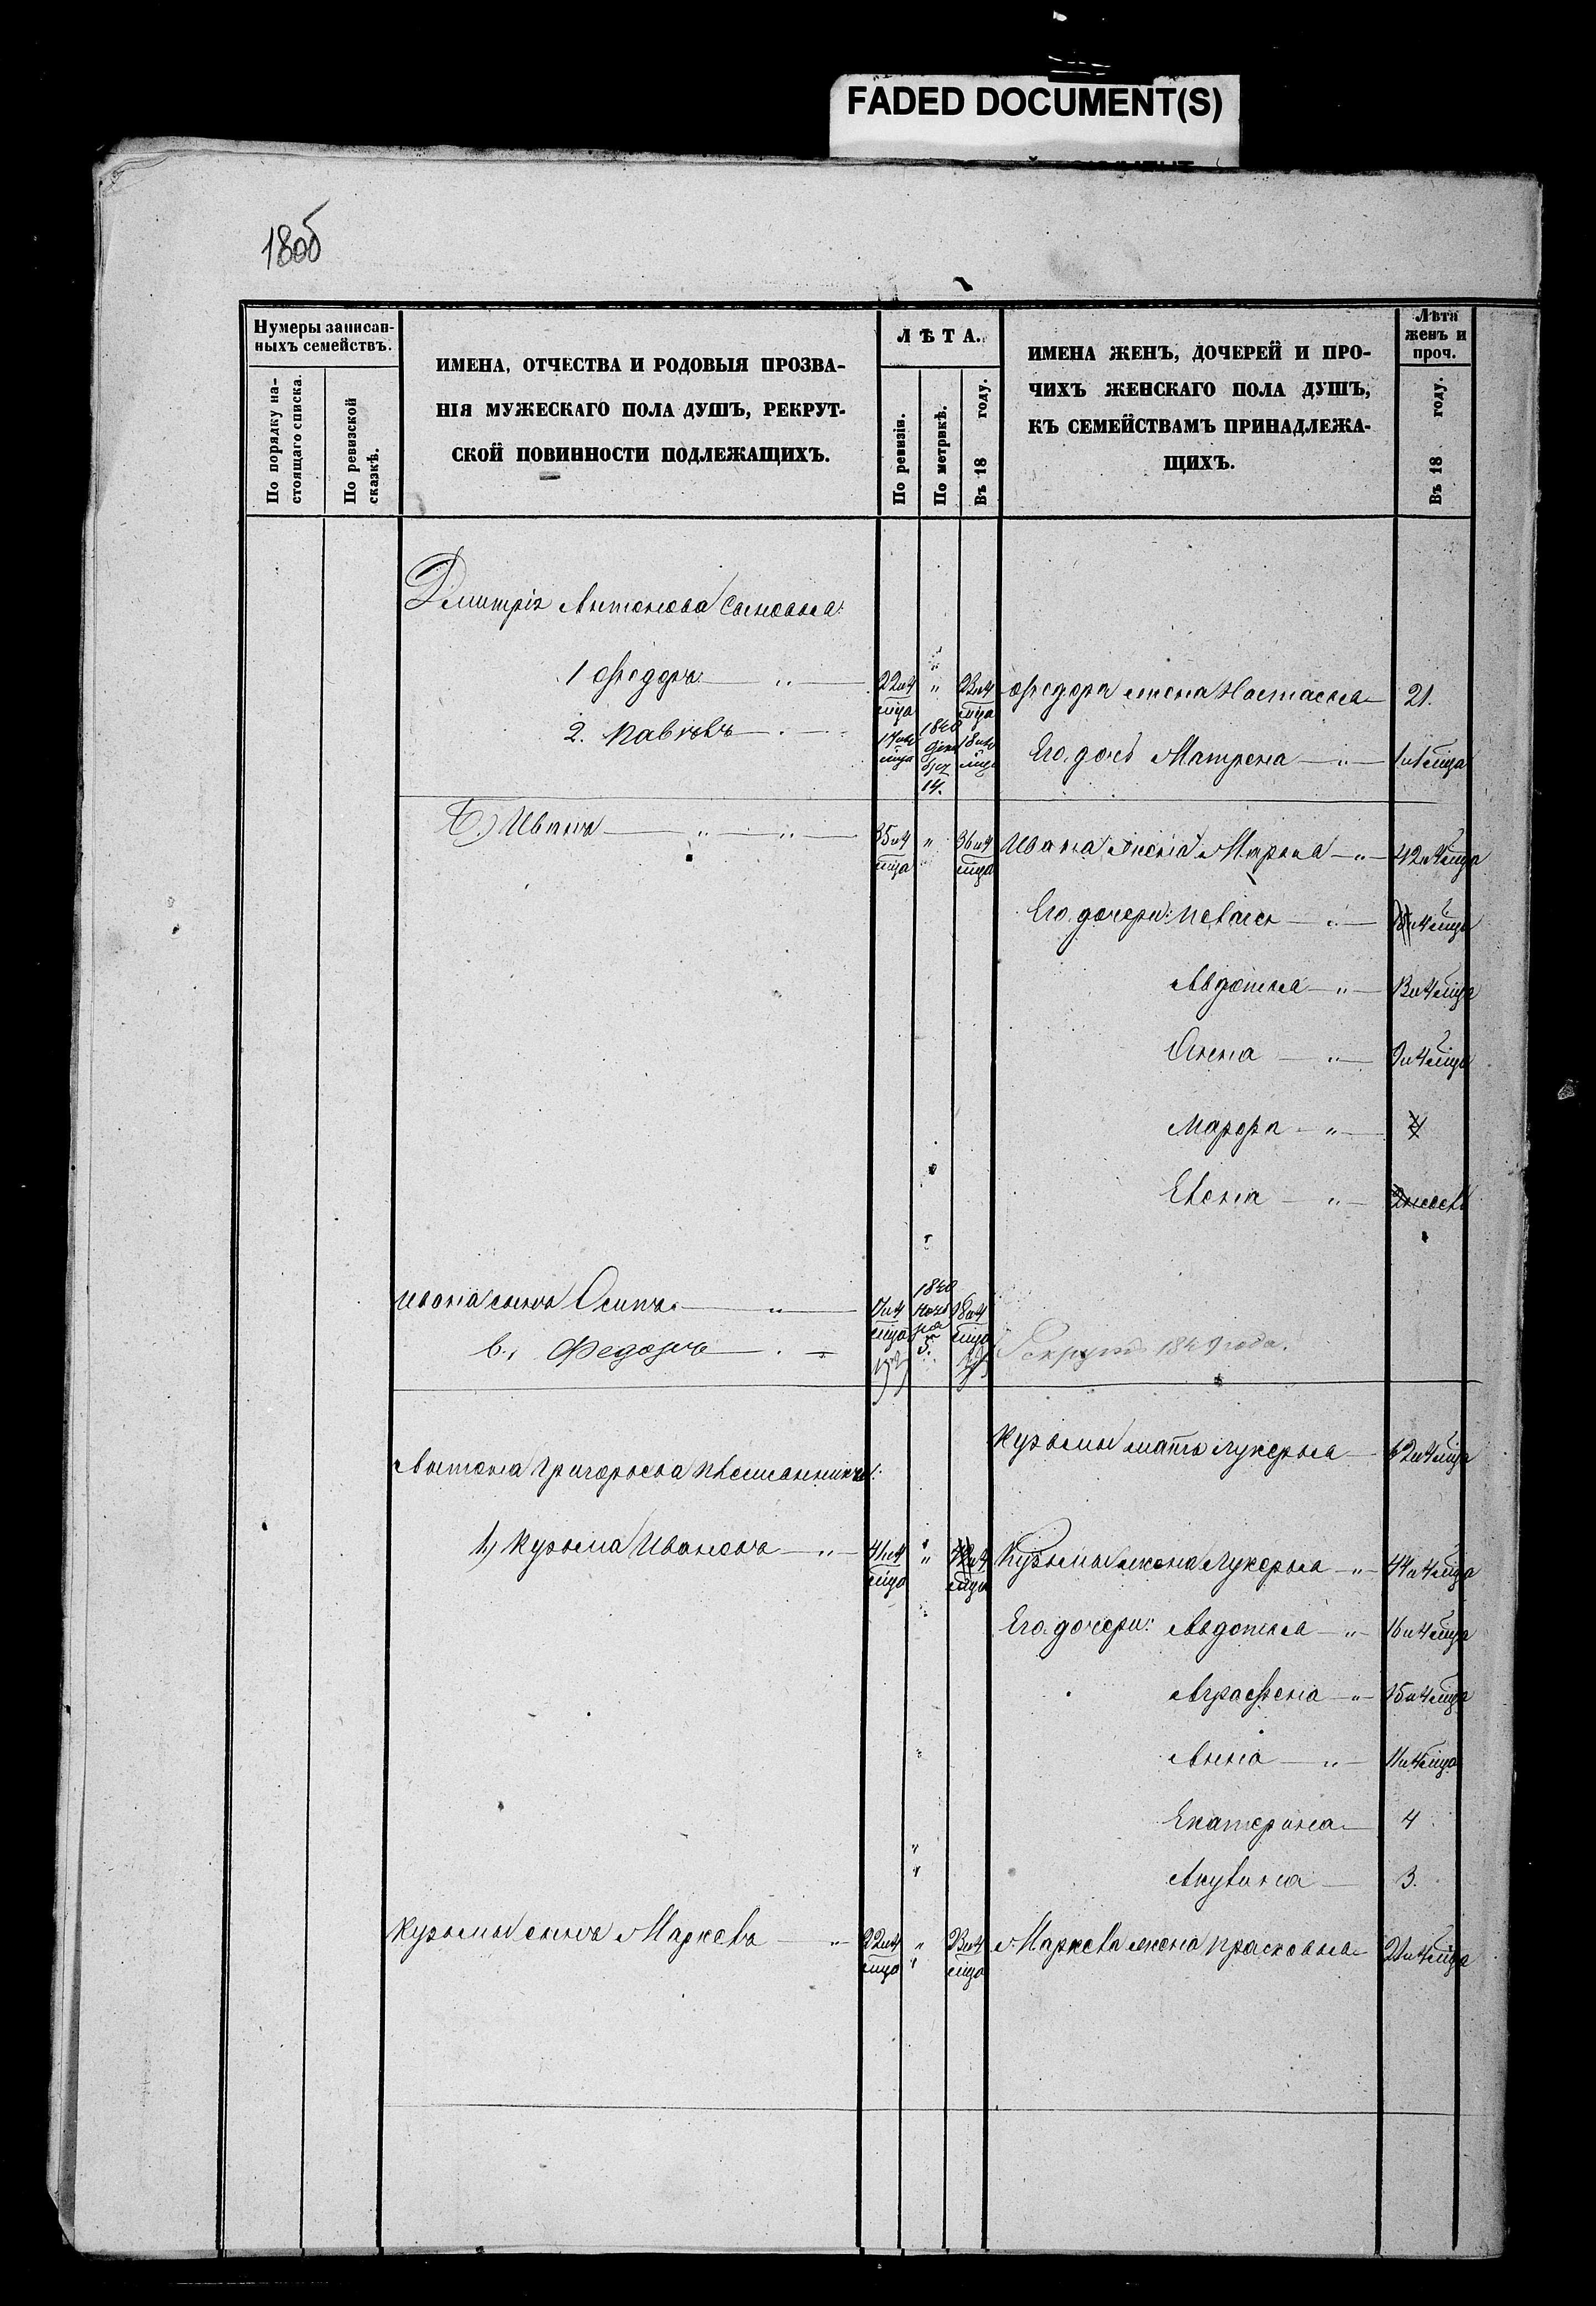 FADED DOCUMENT(S)
180об
Нумеры записан-
ныхъ семействъ.
По порядку на-
стоящаго списка.
По ревизской
сказкѣ.
ИМЕНА, ОТЧЕСТВА И РОДОВЫЯ ПРОЗВА-
НІЯ МУЖЕСКАГО ПОЛА ДУШЪ, РЕКРУТ-
СКОЙ ПОВИННОСТИ ПОДЛЕЖАЩИХЪ.
ЛѢТА.
По ревизіи.
По метрикѣ.
Въ 18 году.
ИМЕНА ЖЕНЪ, ДОЧЕРЕЙ И ПРО-
ЧИХЪ ЖЕНСКАГО ПОЛА ДУШЪ,
КЪ СЕМЕЙСТВАМЪ ПРИНАДЛЕЖА-
ЩИХЪ.
Лѣта
женъ и
проч.
Въ 18 году.
Дмитрія Антонова сыновья:
1 Ѳедоръ 22 и 4 мца " 23 и 4 мца Ѳедора жена Настасья 21.
2. Павелъ 17 и 10 мца 1840 декабря 14. 18 и 10 мца Его дочь Матрена 1 и 1 мца
Б.) Иванъ 35 и 4 мца " 36 и 4 мца Ивана жена Марья 42 и 4 мца
Его дочери: 15 и 4 мца
Авдотья 13 и 4 мца
Анна 9 и 4 мца
Марфа 4
Елена
Ивана сынъ Осипъ 17 и 4 мца 1840 ноября 5. 18 и 4 мца
в., Федоръ Рекрутъ 1849 года.
Кузьмы мать Лукерья 62 и 4 мца
Антона Григорьева племянники:
1,) Кузьма Ивановъ 41 и 4 мца " 42 и 4 мца Кузьмы жена Лукерья 44 и 4 мца
Его дочери: Авдотья 16 и 4 мца
Аграфена 15 и 4 мца
Анна 11 и 4 мца
Екатерина 4
Акулина 3.
Кузьмы сынъ Маркелъ 22 и 4 мца " 23 и 4 мца Маркела жена Прасковья 21 и 4 мца